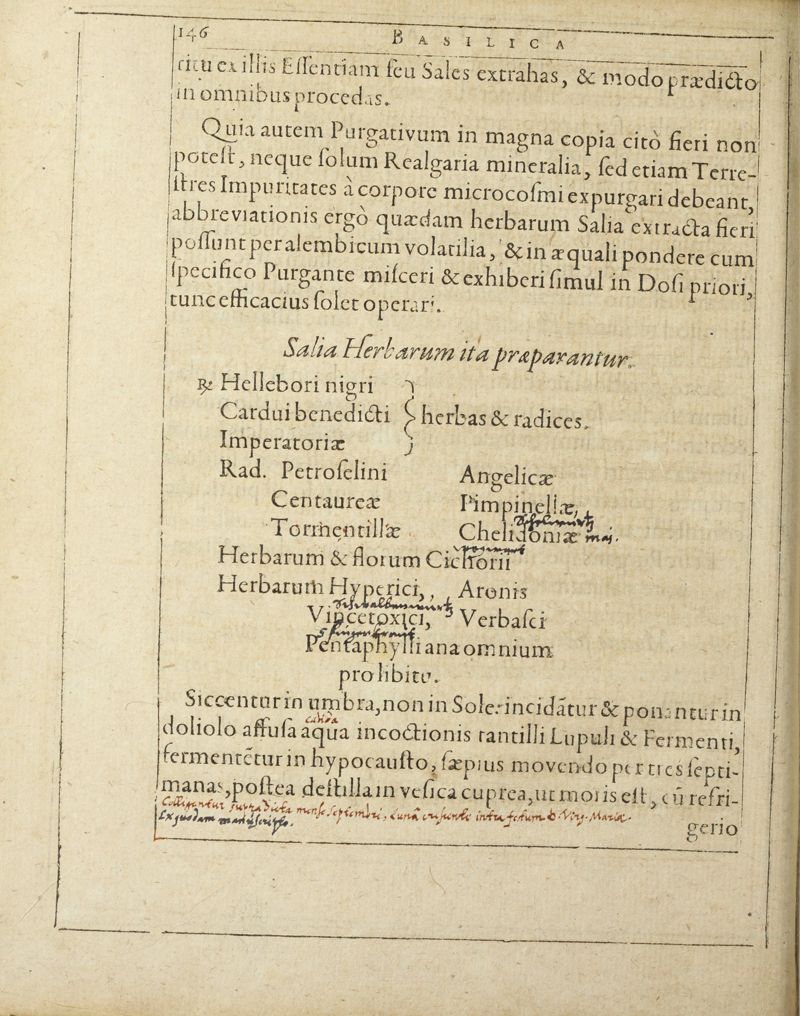 146 BASILICA
ritu ex illis Eſſentiam ſeu Sales extrahas, & modo prædicto
in omnibus procedas.
Quia autem Purgativum in magna copia citò fieri non
poteſt, neque ſolum Realgaria mineralia, ſed etiam Terre-
ſtres Impuritates à corpore microcoſmi expurgari debeant,
abbreviationis ergò quædam herbarum Salia extracta fieri
poſſunt per alembicum volatilia, & in æquali pondere cum
ſpecifico Purgante miſceri & exhiberi ſimul in Doſi priori,
tunc efficacius ſolet operari.
Salia Herbarum ita præparantur.
℞ Hellebori nigri
Cardui benedicti } herbas & radices.
Imperatoriæ
Rad. Petroſelini Angelicæ
Centaureæ Pimpinellæ,
Tormentillæ Chelidoniæ maj.
Herbarum & florum Cichorii
Herbarum Hyperici, Aronis
Vincetoxici, Verbaſci
Pentaphylli ana omnium
pro libitu.
Siccentur in umbra, non in Sole: incidātur & ponantur in
doliolo affuſa aqua incoctionis tantilli Lupuli & Fermenti,
fermentētur in hypocauſto, ſæpius movendo per tres ſepti-
manas, poſtea deſtillam veſica cuprea, ut moris eſt, cū refri-
Colligantur mense septembri, luna
Ex quodam manuscripto.
gerio